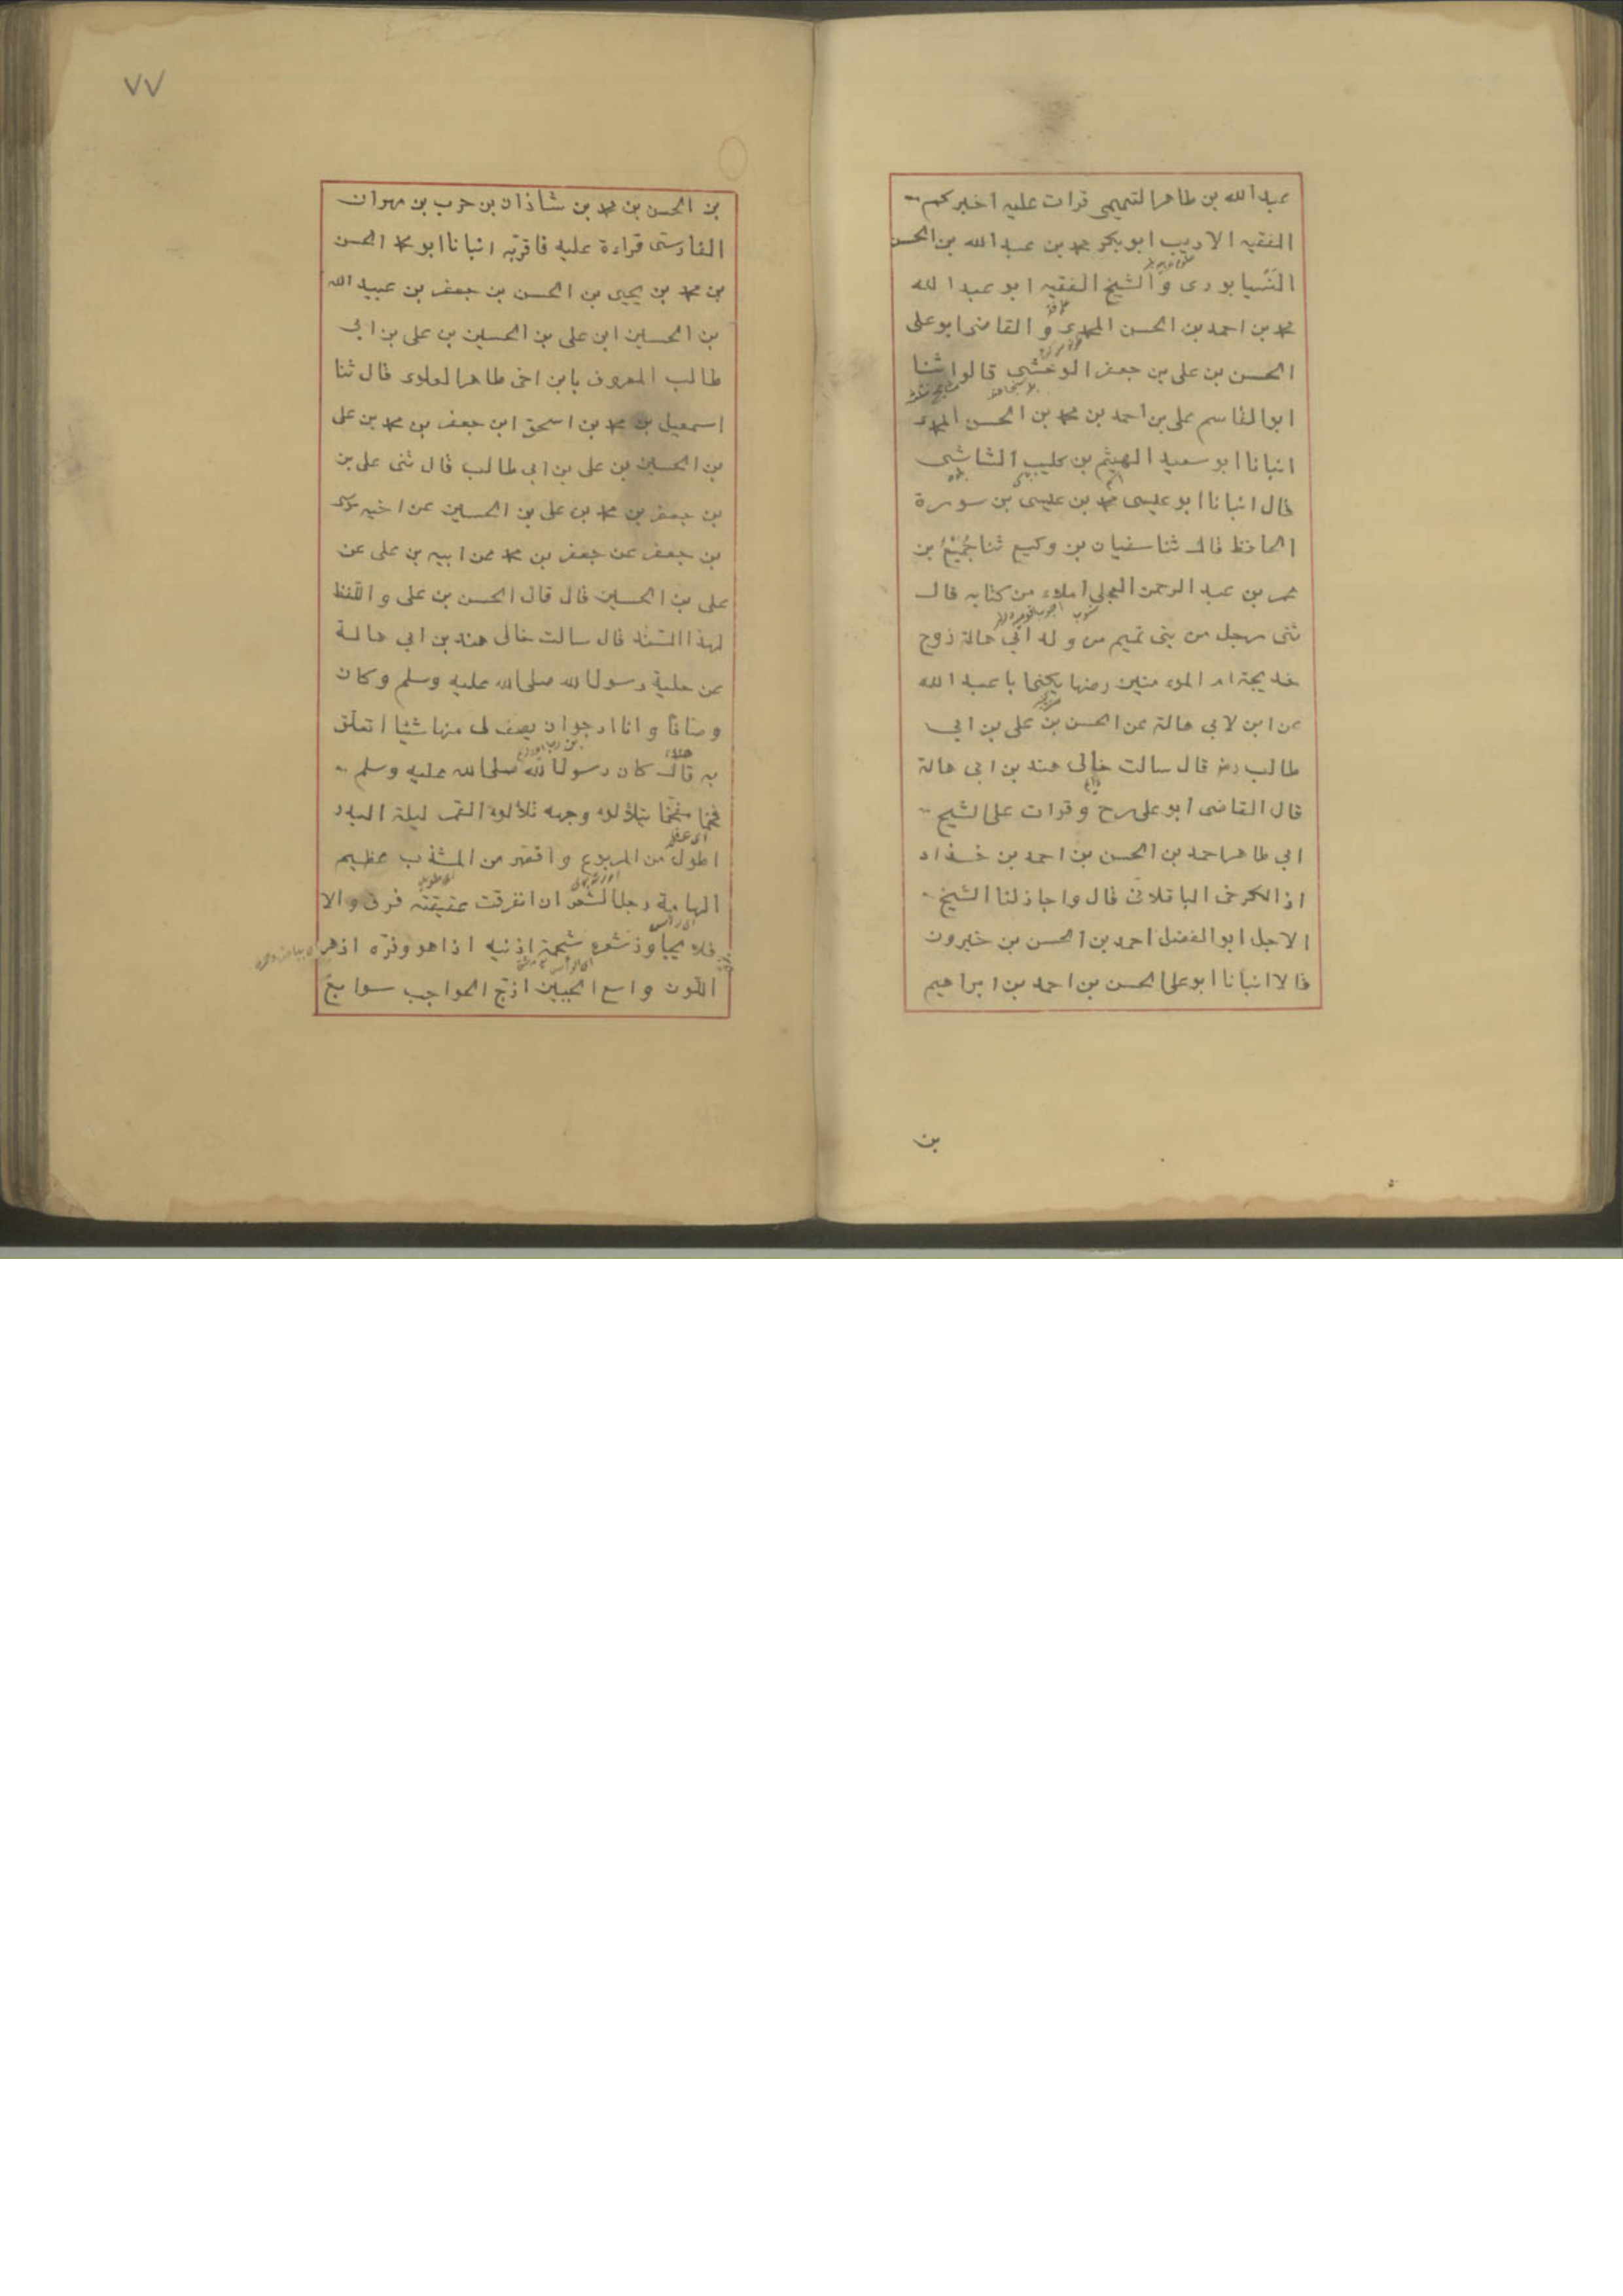 عبد الله بن طاهر التميمى قرات عليه اخبركم
الفقيه الاديب ابو بكر محمد بن عبد الله بن الحسن
النسيابورى والشيخ الفقيه ابو عبد الله
محمد بن احمد بن الحسن المحمدى و القاضى ابو على
الحسن بن على بن جعفر الوخشى قالوا ثنا
ابو القاسم على بن احمد بن محمد بن الحسن
انبانا ابو سعيد الهيثم بن كليب الشاشى
قال انبانا ابو عيسى محمد بن عيسى بن سورة
الحافظ قال ثنا سفيان بن وكيع ثنا جُمَيْعُ بن
عمر بن عبد الرحمن العجلى املاء من كتابه قال
ثنى رجل من بنى تميم من ولد ابي هالة زوج
خديجة ام المومنين رضها يكنى ابا عبد الله
عن ابن لابي هالة عن الحسن بن على بن ابي
طالب رض قال سالت خالى هند بن ابي هالة
قال القاضى ابو على رح وقرات على الشيخ
ابي طاهر احمد بن الحسن بن احمد بن خذاد
اذ الكرخى الباقلانى قال واجاز لنا الشيخ
الاجل ابو الفضل احمد بن الحسن بن خيرون
قالا انبانا ابو على الحسن بن احمد بن ابراهيم
بن
٧٧
بن الحسن بن محمد بن شاذان بن حرب بن مهران
الفارسى قراءة عليه فاقرّبه انبانا ابو محمد الحسن
بن محمد بن يحيى بن الحسن بن جعفر بن عبيد الله
بن الحسين ابن على بن الحسين بن على بن ابي
طالب المعروف بابن اخى طاهر العلوى قال ثنا
اسمعيل بن محمد بن اسحق ابن جعفر بن محمد بن على
بن الحسين بن على بن ابي طالب قال ثنى على بن
بن جعفر بن محمد بن على بن الحسين عن اخيه موسى
بن جعفر عن جعفر بن محمد عن ابيه بن على عن
على بن الحسين قال قال الحسن بن على واللفظ
لهذا السّند قال سالت خالى هند بن ابي هالة
عن حلية رسول الله صلى الله عليه وسلم وكان
وصّافا وانا ارجو ان يصف لى منها شئيا اتعلّق
به قال كان رسول الله صلى الله عليه وسلم
فخما مفخّما يتلألوء وجهه تلألوء القمر ليلة البدر
اى عظم
اطول من المربوع واقصر من المشذب عظيم
الهامة رجل الشعر ان انفرقت عقيقته فرق والا
فلا يجاوز شعره شحمة اذنيه اذا هو وفرّه ازهر
اللّون واسع الجبين ازج الحواجب سوابغ